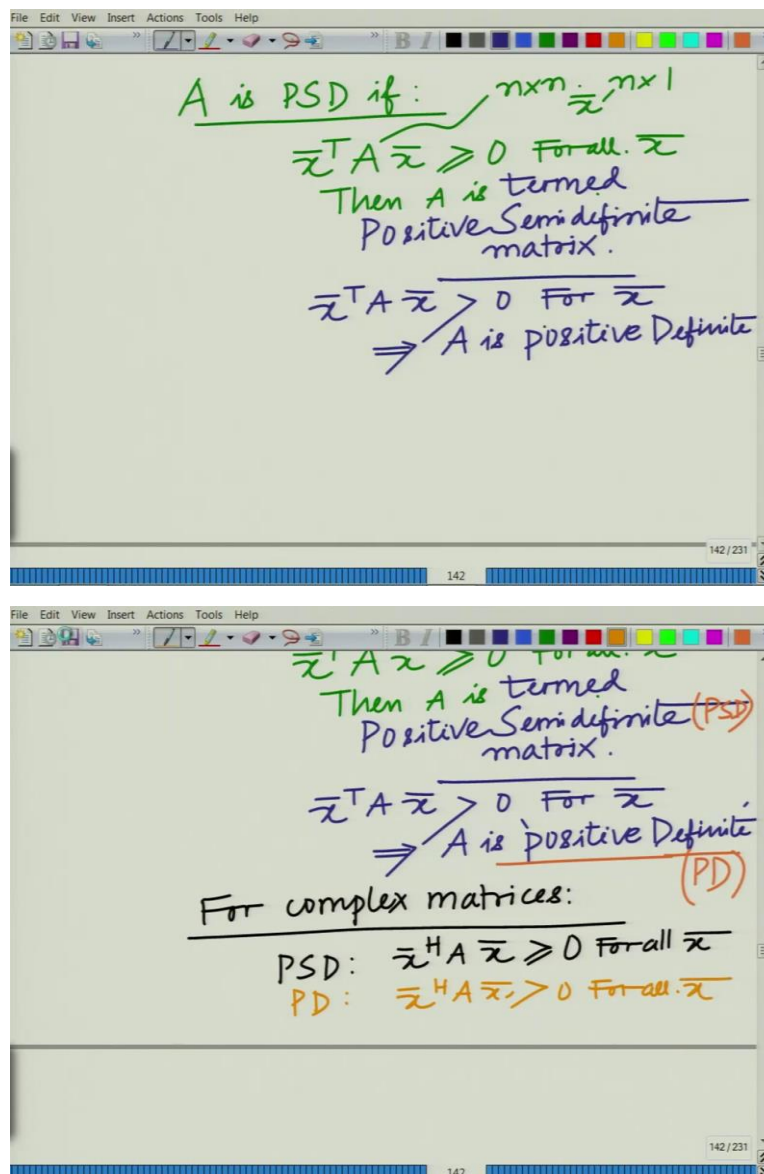 File Edit View Insert Actions Tools Help
B I
A is PSD if : n×n x̄, n×1
x̄ᵀ A x̄ ⩾ 0 For all. x̄
Then A is termed
Positive Semidefinite
matrix.
x̄ᵀ A x̄ > 0 For x̄
⇒ A is positive Definite
142 / 231
142
File Edit View Insert Actions Tools Help
B I
x̄ᵀ A x ⩾ 0 For all. x̄
Then A is termed
Positive Semidefinite (PSD)
matrix.
x̄ᵀ A x̄ > 0 For x̄
⇒ A is positive Definite
(PD)
For complex matrices:
PSD: x̄ᴴ A x̄ ⩾ 0 For all x̄
PD: x̄ᴴ A x̄ > 0 For all. x̄
142 / 231
142